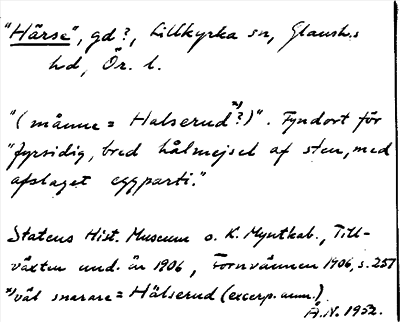 "Härse", gd?, Lillkyrka sn, Glansh.s
hd, Ör. l.
"(månne = Halserud *)?)". Fyndort för
"fyrsidig, bred hålmejsel af sten, med
afslaget eggparti."
Statens Hist. Museum o. K. Myntkab., Till-
växten und. år 1906, Fornvännen 1906, s. 257
*) väl snarare = Hälserud (excerp. anm.)
Å.N. 1952.